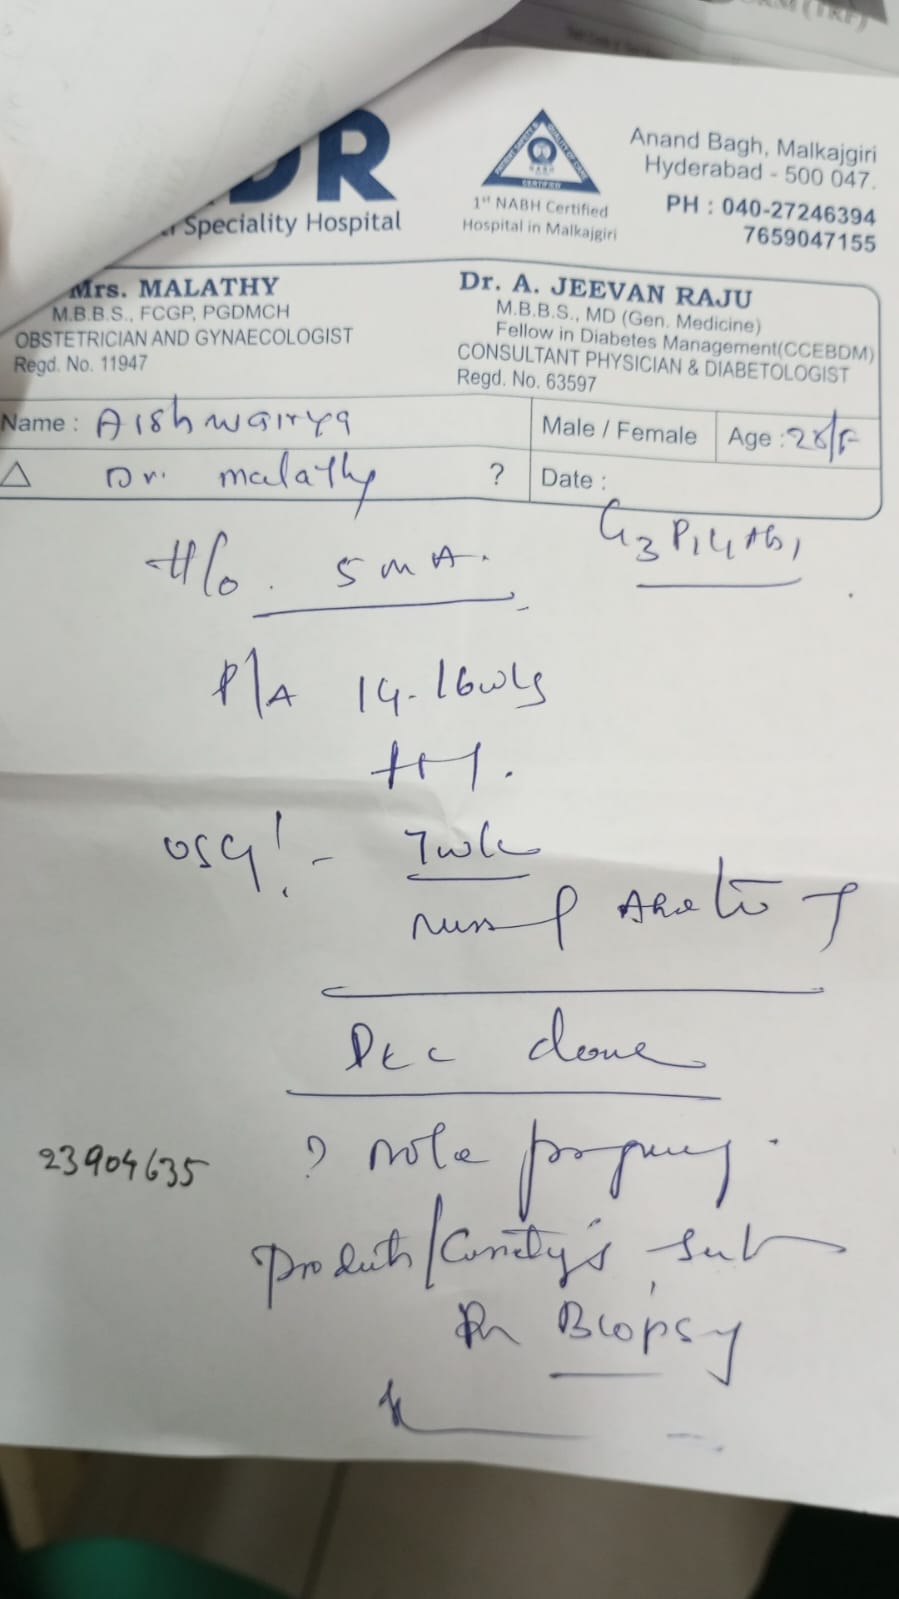 DR
Speciality Hospital
CERTIFIED
1st NABH Certified
Hospital in Malkajgiri
Anand Bagh, Malkajgiri
Hyderabad - 500 047.
PH : 040-27246394
7659047155
Mrs. MALATHY
M.B.B.S., FCGP, PGDMCH
OBSTETRICIAN AND GYNAECOLOGIST
Regd. No. 11947
Dr. A. JEEVAN RAJU
M.B.B.S., MD (Gen. Medicine)
Fellow in Diabetes Management(CCEBDM)
CONSULTANT PHYSICIAN & DIABETOLOGIST
Regd. No. 63597
Name : Aishwairya
Male / Female
Age : 28/F
△ Dr. malathy ?
Date :
H/o. 5 m A.
P/A 14-16wks
USG! - 7wk
D&C done
? mole
23904635
Biopsy